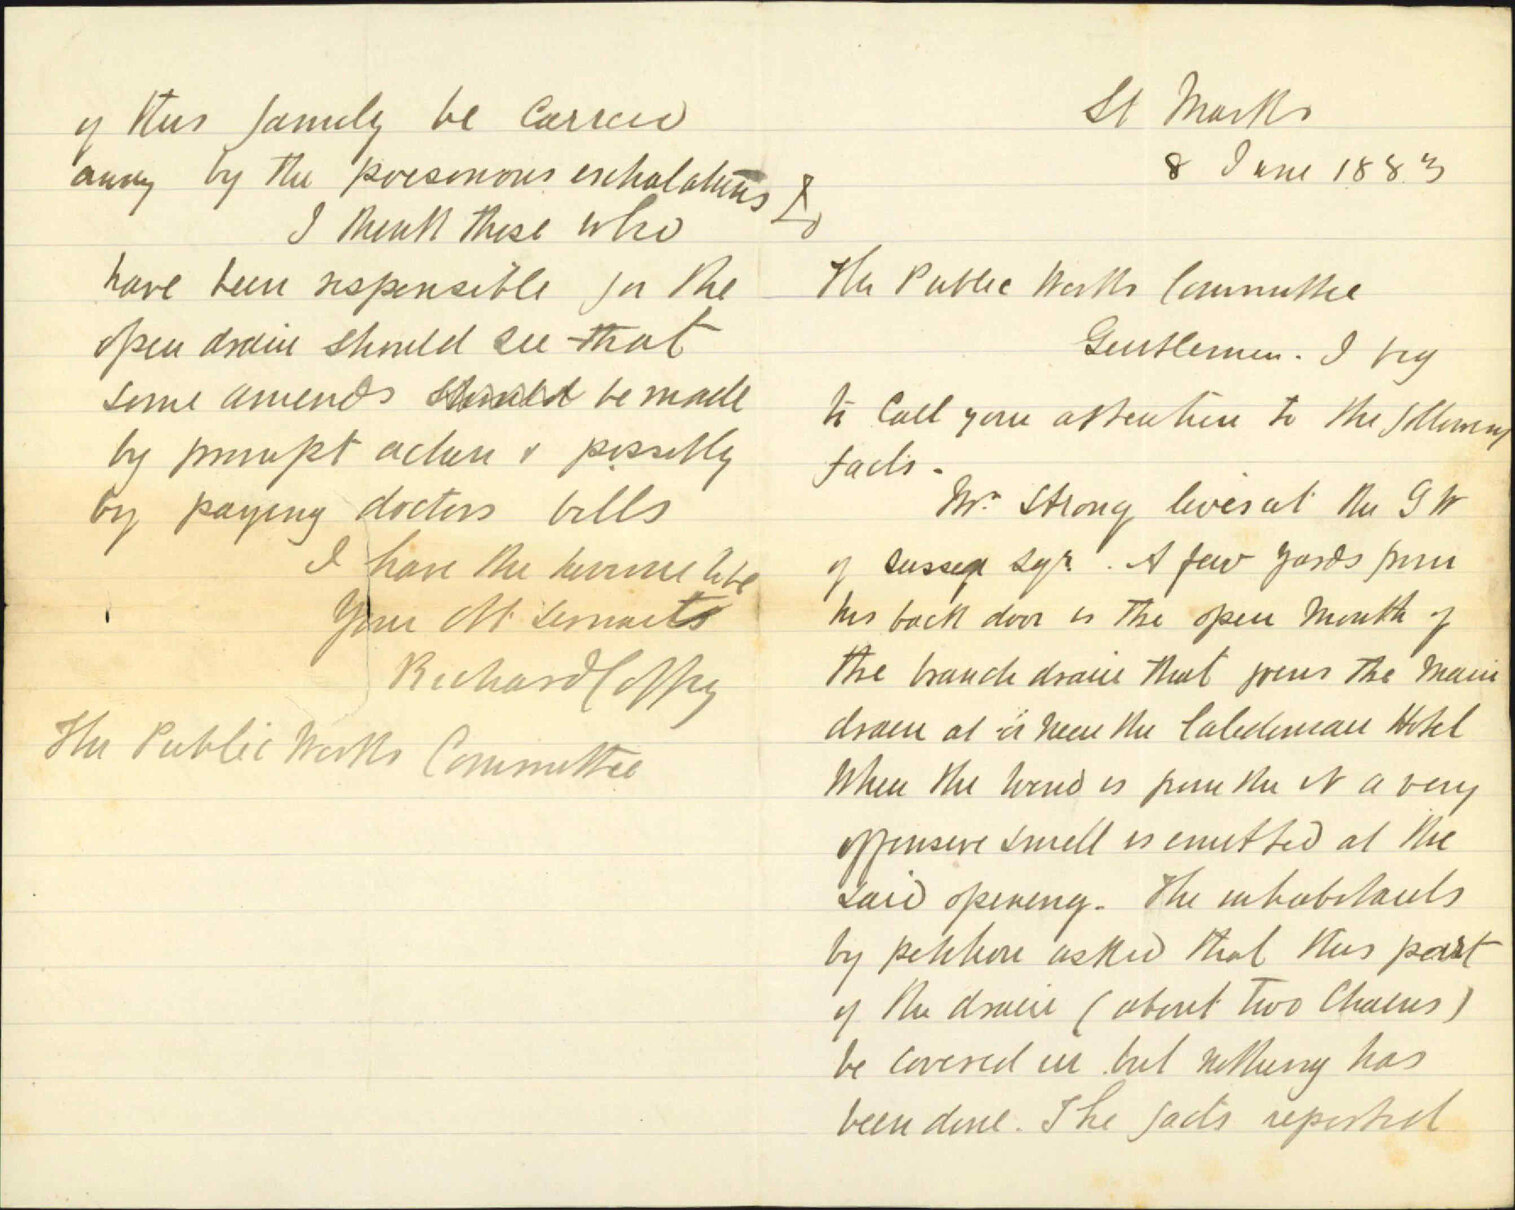 St Marks
8 June 1883
The Public Works Committee
Gentlemen. I beg
to Call your attention to the following
facts.
Mr. Strong lives at the S W
of Sussex Sqr. A few yards from
his back door is the open Mouth of
the branch drain that joins the Main
drain at or near the Caledonian Hotel
When the Wind is from the N a very
offensive smell is emitted at the
said opening. The inhabitants
by petition asked that this part
of the drain (about two Chains)
be covered in but nothing has
been done. The facts reported
of this family be Carried
away by the poisonous exhalations
I think those who
have been responsible for the
open drain should see that
some amends should be made
by prompt action & possibly
by paying doctors bills
I have the honour to be
Your Ob Servants
Richard Coffey
The Public Works Committee